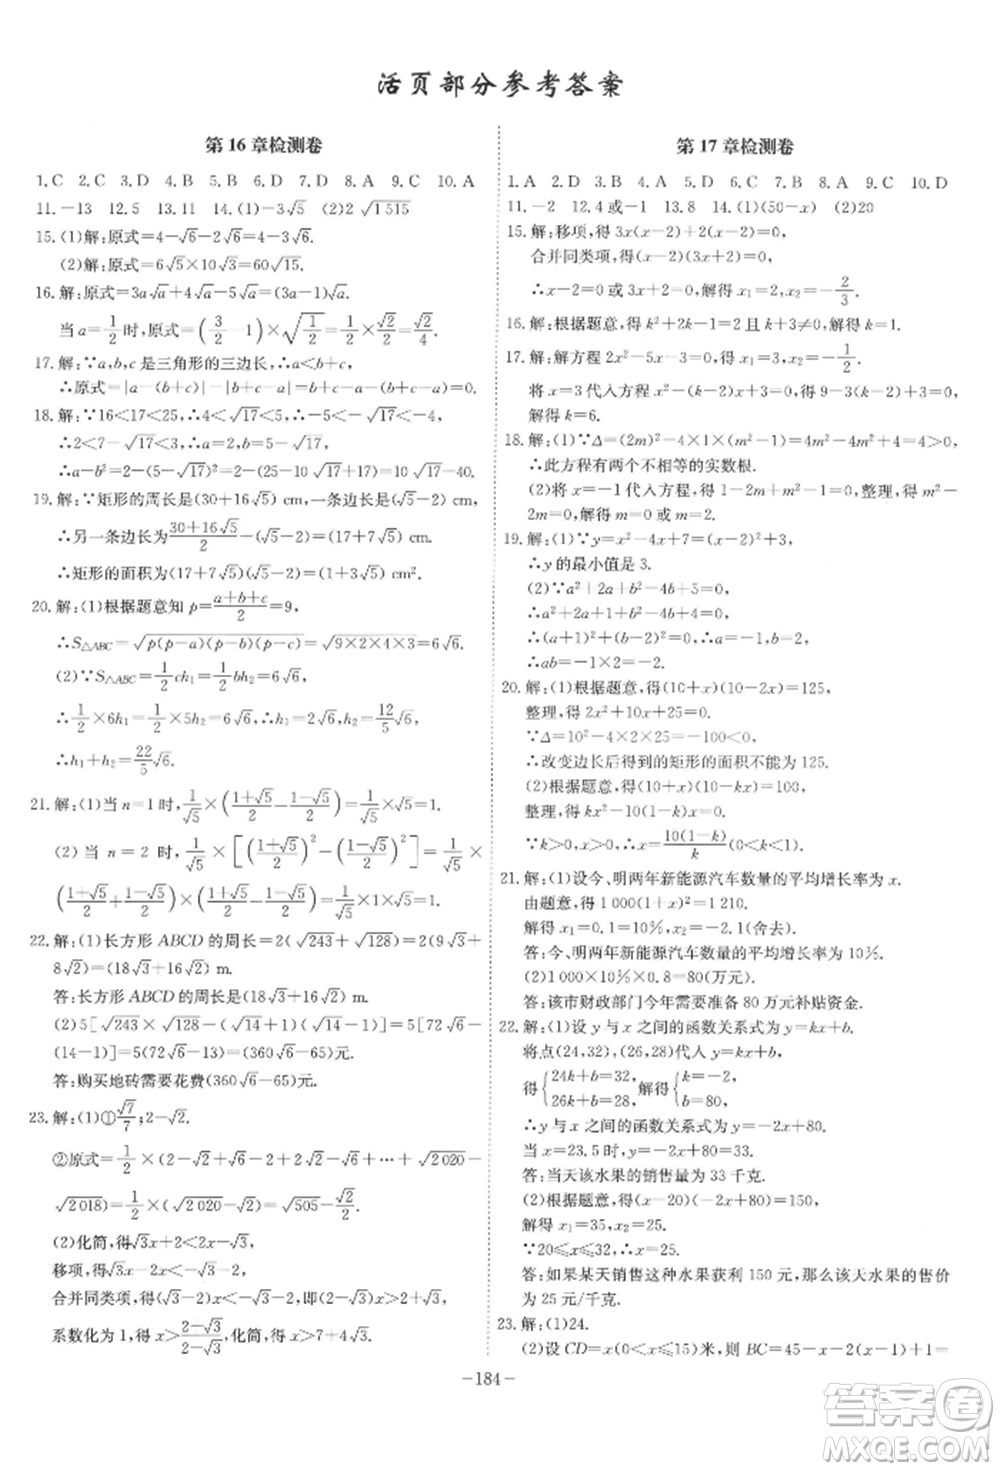 活页部分参考答案
第 16 章检测卷
1. C 2. C 3. D 4. B 5. C 6. B 7. D 8. A 9. C 10. A
11. －13 12. 5 13. 11 14. (1)－3√5 (2)2√(1 515)
15. (1)解:原式=4－√6－2√6=4－3√6.
(2)解:原式=6√5×10√3=60√15.
16. 解:原式=3a√a+4√a－5√a=(3a－1)√a.
当 a=1/2 时,原式=(3/2－1)×√(1/2)=1/2×√2/2=√2/4.
17. 解:∵a,b,c 是三角形的三边长,∴a<b+c,
∴原式=|a－(b+c)|－|b+c－a|=0.
18. 解:∵16<17<25,∴4<√17<5,∴－5<－√17<－4,
∴2<7－√17<3,∴a=2,b=5－√17,
19. 解:∵矩形的周长是(30+16√5) cm,一条边长是(√5－2) cm,
∴另一条边长为(30+16√5)/2－(√5－2)=(17+7√5)cm.
∴矩形的面积为(17+7√5)(√5－2)=(1+3√5) cm².
20. 解:(1)根据题意知 p=(a+b+c)/2=9,
∴S△ABC=√(p(p－a)(p－b)(p－c))=√(9×2×4×3)=6√6.
(2)∵S△ABC=1/2 ch₁=1/2 bh₂=6√6,
∴1/2×6h₁=1/2×5h₂=6√6,∴h₁=2√6,h₂=12/5√6.
∴h₁+h₂=22/5√6.
21. 解:(1)当 n=1 时,1/√5×((1+√5)/2－(1－√5)/2)=1/√5×√5=1.
(2) 当 n = 2 时, 1/√5×[((1+√5)/2)²－((1－√5)/2)²]=1/√5×
((1+√5)/2+(1－√5)/2)×((1+√5)/2－(1－√5)/2)=1/√5×1×√5=1.
22. 解:(1)长方形 ABCD 的周长=2(√243+√128)=2(9√3+
8√2)=(18√3+16√2) m.
答:长方形 ABCD 的周长是(18√3+16√2)m.
(2)5[√243×√128－(√14+1)(√14－1)]=5[72√6－
(14－1)]=5(72√6－13)=(360√6－65)元.
答:购买地砖需要花费(360√6－65)元.
23. 解:(1)①√7/7;2－√3
②原式=1/2×(2－√2+√6－2+2√2－√6+…+√(2 020)－
√(2 018))=1/2×(√(2 020)－√2)=√505－√2/2.
(2)化简,得√3x－√3>2+2x,
移项,得√3x－2x>2+√3,
系数化为 1,得 x>－(2+√3)/(2－√3),即 x>－7－4√3.
第 17 章检测卷
1. A 2. D 3. B 4. B 5. D 6. B 7. A 8. A 9. C 10. D
11. －2 12. 4 或－1 13. 8 14. (1)(50－x) (2)20
15. 解:移项,得 3x(x－2)+2(x－2)=0,
合并同类项,得(x－2)(3x+2)=0,
∴x－2=0 或 3x+2=0,∴x₁=2,x₂=－2/3.
16. 解:根据题意,得 k²+2k－2=1 且 k+3≠0,解得 k=1.
17. 解:解方程 2x²－5x－3=0,得 x₁=3,x₂=－1/2.
将 x=3 代入方程 x²－(k－2)x+3=0,得 9－3(k－2)+3=0,
解得 k=6.
18. 解:(1)∵Δ=(2m)²－4×1×(m²－1)=4m²－4m²+4=4>0,
∴此方程有两个不相等的实数根.
19. 解:(1)∵y=x²－4x+7=(x－2)²+3,
∴y 的最小值是 3.
(2)∵a²+2a+b²－4b+5=0,
∴a²+2a+1+b²－4b+4=0,
∴(a+1)²+(b－2)²=0,∴a=－1,b=2,
∴ab=－1×2=－2.
20. 解:(1)根据题意,得(10+x)(10－2x)=125,
整理,得 2x²+10x+25=0.
∵Δ=10²－4×2×25=－100<0,
∴改变边长后得到的矩形的面积不能为 125.
(2)根据题意,得(10+x)(10－kx)=100,
整理,得 kx²－10(1－k)x=0.
∵k>0,x>0,∴x=10(1－k)/k(0<k<1).
21. 解:(1)设今、明两年新能源汽车数量的平均增长率为 x.
由题意,得 1 000(1+x)²=1 210.
解得 x₁=0.1=10%,x₂=－2.1(舍去).
答:今、明两年新能源汽车数量的平均增长率为 10%.
(2)1 000×10%×0.8=80(万元).
答:该市财政部门今年需要准备 80 万元补贴资金.
22. 解:(1)设 y 与 x 之间的函数关系式为 y=kx+b.
将点(24,32),(26,28)代入 y=kx+b,
得{24k+b=32,26k+b=28, 解得{k=－2,b=80.
∴y 与 x 之间的函数关系式为 y=－2x+80.
当 x=23.5 时,y=－2x+80=33.
答:当天该水果的销售量为 33 千克.
(2)根据题意,得(x－20)(－2x+80)=150,
解得 x₁=35,x₂=25.
∵20≤x≤32,∴x=25.
答:如果某天销售这种水果获利 150 元,那么该天水果的售价
为 25 元/千克.
23. 解:(1)24.
(2)设 CD=x(0<x≤15)米,则 BC=45－x－x+1+1=
－184－
答案圈
MXQE.COM